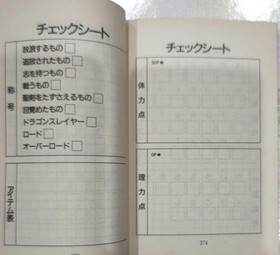 チェックシート
称号
放浪するもの□
追放されたもの□
志を持つもの□
戦うもの□
聖剣をたずさえるもの□
目覚めたもの□
ドラゴンスレイヤー□
ロード□
オーバーロード□
アイテム表
チェックシート
体力点
50P★
理力点
0P★
274